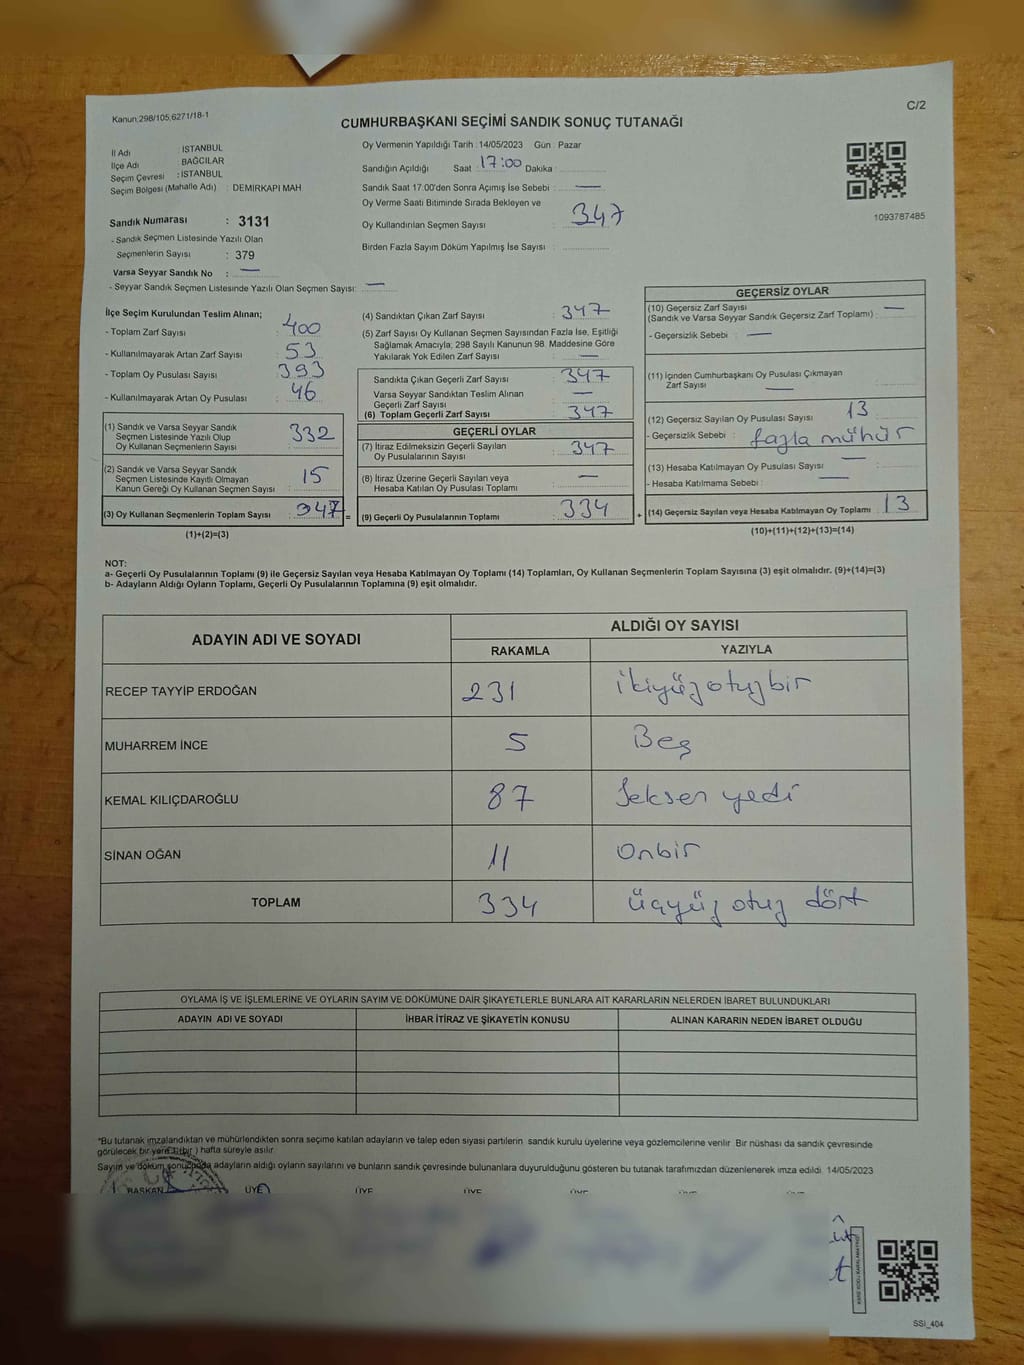 Kanun,298/105,6271/18-1
C/2
CUMHURBAŞKANI SEÇİMİ SANDIK SONUÇ TUTANAĞI
İl Adı : İSTANBUL
İlçe Adı : BAĞCILAR
Seçim Çevresi : İSTANBUL
Seçim Bölgesi (Mahalle Adı) : DEMİRKAPI MAH
Sandık Numarası : 3131
- Sandık Seçmen Listesinde Yazılı Olan
Seçmenlerin Sayısı : 379
Varsa Seyyar Sandık No : —
- Seyyar Sandık Seçmen Listesinde Yazılı Olan Seçmen Sayısı: —
Oy Vermenin Yapıldığı Tarih : 14/05/2023 Gün : Pazar
Sandığın Açıldığı Saat 17:00 Dakika :
Sandık Saat 17.00'den Sonra Açımış İse Sebebi : —
Oy Verme Saati Bitiminde Sırada Bekleyen ve
Oy Kullandırılan Seçmen Sayısı : 347
Birden Fazla Sayım Döküm Yapılmış İse Sayısı :
1093787485
İlçe Seçim Kurulundan Teslim Alınan;
- Toplam Zarf Sayısı : 400
- Kullanılmayarak Artan Zarf Sayısı : 53
- Toplam Oy Pusulası Sayısı : 393
- Kullanılmayarak Artan Oy Pusulası : 46
(1) Sandık ve Varsa Seyyar Sandık
Seçmen Listesinde Yazılı Olup
Oy Kullanan Seçmenlerin Sayısı : 332
(2) Sandık ve Varsa Seyyar Sandık
Seçmen Listesinde Kayıtlı Olmayan
Kanun Gereği Oy Kullanan Seçmen Sayısı : 15
(3) Oy Kullanan Seçmenlerin Toplam Sayısı : 347 =
(1)+(2)=(3)
(4) Sandıktan Çıkan Zarf Sayısı : 347
(5) Zarf Sayısı Oy Kullanan Seçmen Sayısından Fazla İse, Eşitliği
Sağlamak Amacıyla; 298 Sayılı Kanunun 98. Maddesine Göre
Yakılarak Yok Edilen Zarf Sayısı : —
Sandıkta Çıkan Geçerli Zarf Sayısı : 347
Varsa Seyyar Sandıktan Teslim Alınan
Geçerli Zarf Sayısı : —
(6) Toplam Geçerli Zarf Sayısı : 347
GEÇERLİ OYLAR
(7) İtiraz Edilmeksizin Geçerli Sayılan
Oy Pusulalarının Sayısı : 347
(8) İtiraz Üzerine Geçerli Sayılan veya
Hesaba Katılan Oy Pusulası Toplamı : —
(9) Geçerli Oy Pusulalarının Toplamı : 334 +
GEÇERSİZ OYLAR
(10) Geçersiz Zarf Sayısı
(Sandık ve Varsa Seyyar Sandık Geçersiz Zarf Toplamı) : —
- Geçersizlik Sebebi : —
(11) İçinden Cumhurbaşkanı Oy Pusulası Çıkmayan
Zarf Sayısı : —
(12) Geçersiz Sayılan Oy Pusulası Sayısı : 13
- Geçersizlik Sebebi : fazla mühür
(13) Hesaba Katılmayan Oy Pusulası Sayısı : —
- Hesaba Katılmama Sebebi : —
(14) Geçersiz Sayılan veya Hesaba Katılmayan Oy Toplamı : 13
(10)+(11)+(12)+(13)=(14)
NOT:
a- Geçerli Oy Pusulalarının Toplamı (9) ile Geçersiz Sayılan veya Hesaba Katılmayan Oy Toplamı (14) Toplamları, Oy Kullanan Seçmenlerin Toplam Sayısına (3) eşit olmalıdır. (9)+(14)=(3)
b- Adayların Aldığı Oyların Toplamı, Geçerli Oy Pusulalarının Toplamına (9) eşit olmalıdır.
ADAYIN ADI VE SOYADI ALDIĞI OY SAYISI
RAKAMLA YAZIYLA
RECEP TAYYİP ERDOĞAN 231 ikiyüzotuzbir
MUHARREM İNCE 5 Beş
KEMAL KILIÇDAROĞLU 87 Seksen yedi
SİNAN OĞAN 11 Onbir
TOPLAM 334 üçyüz otuz dört
OYLAMA İŞ VE İŞLEMLERİNE VE OYLARIN SAYIM VE DÖKÜMÜNE DAİR ŞİKAYETLERLE BUNLARA AİT KARARLARIN NELERDEN İBARET BULUNDUKLARI
ADAYIN ADI VE SOYADI İHBAR İTİRAZ VE ŞİKAYETİN KONUSU ALINAN KARARIN NEDEN İBARET OLDUĞU
*Bu tutanak imzalandıktan ve mühürlendikten sonra seçime katılan adayların ve talep eden siyasi partilerin sandık kurulu üyelerine veya gözlemcilerine verilir. Bir nüshası da sandık çevresinde
görülecek bir yere 1(bir) hafta süreyle asılır.
Sayım ve döküm sonucunda adayların aldığı oyların sayılarını ve bunların sandık çevresinde bulunanlara duyurulduğunu gösteren bu tutanak tarafımızdan düzenlenerek imza edildi. 14/05/2023
BAŞKAN ÜYE ÜYE ÜYE ÜYE ÜYE ÜYE
SSİ_404